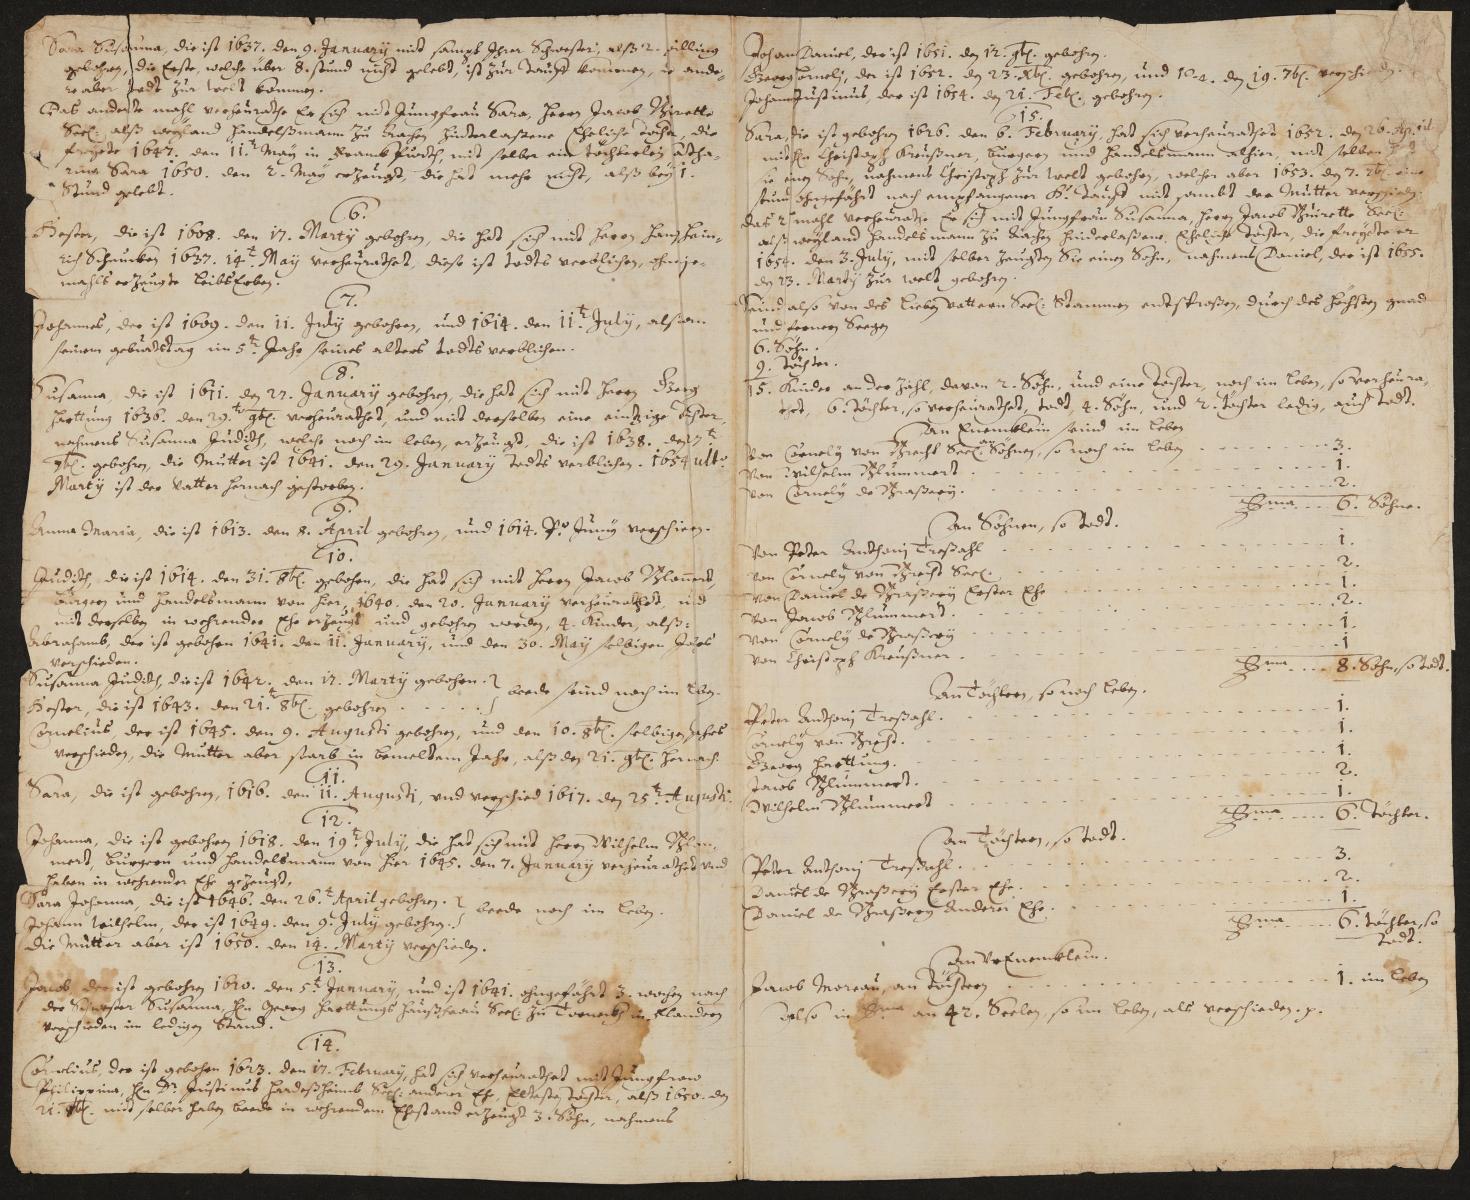 Sara Susanna, die ist 1637. den 9. January mit sampt Ihrer Schwester, alß 2. Zilling
gebohren, die Erste, welche über 8. stund nicht gelebt, ist zur Tauff kommen, die ande-
re aber todt zur Welt kommen.
Das anderte mahl verheurathe Er sich mit Jungfrau Sara, Herrn Jacob
Seel: alß weyland Handelßmann zu Aachen hinterlaßene Eheliche Tochter, die
freyete 1647. den 11.t May in Franckfürth, mit selber ein Töchterlein Catha-
rina Sara 1650. den 2. May erzeugt, die hat mehr nicht, alß bey 1.
Stund gelebt.
6.
Hester, die ist 1608. den 17. Marty gebohren, die hat sich mit Herrn Hanß Hein-
rich Schnurken 1637. 14.t May verheurathet, diese ist todts verblichen, ohne je-
mahls erzeugte Leibs Erben.
7.
Johannes, der ist 1609. den 11. July gebohren, und 1614. den 11.t July, alß an
seinem geburtstag im 5.t Jahr seines alters todts verblichen.
8.
Susanna, die ist 1611. den 27. January gebohren, die hat sich mit Herrn Georg
Hartung 1636. den 29.t 9bl. verheurathet, und mit derselben eine eintzige Tochter,
nahmens Susanna Judith, welche noch im leben, erzeugt, die ist 1638. den 7.t
9bl. gebohren, die Mutter ist 1641. den 29. January todts verblichen. 1654 ult:o
Marty ist der Vatter hernach gestorben.
9.
Anna Maria, die ist 1613. den 8. April gebohren, und 1614. P:o Juny verschien.
10.
Judith, die ist 1614. den 31. 8bl. gebohren, die hat sich mit Herrn Jacob Plummert,
Bürgern und Handelsmann von hier, 1640. den 20. January verheurathet, und
mit derselben in wehrender Ehe erzeugt und gebohren worden, 4. Kinder, alß:
Abrahamb, der ist gebohren 1641. den 11. January, und den 30. May selbigen Jahrs
verschieden.
Susanna Judith, die ist 1642. den 17. Marty gebohren. } beede seind noch im leben.
Hester, die ist 1643. den 21.t 8bl. gebohren
Cornelius, der ist 1645. den 9. Augusti gebohren, und den 10. 8bl. selbigen Jahrs
verschieden, die Mutter aber starb in bemeltem Jahr, alß den 21. 9bl. hernach.
11.
Sara, die ist gebohren, 1616. den 11. Augusti, und verschied 1617. den 25.t Augusti.
12.
Johanna, die ist gebohren 1618. den 19.t July, die hat sich mit Herrn Wilhelm Plum-
mert, Bürgern und Handelsmann von hier 1645. den 7. January verheurathet und
haben in wehrender Ehe gezeugt,
Sara Johanna, die ist 1646. den 26.t April gebohren. } beede noch im leben.
Johann Wilhelm, der ist 1649. den 9. July gebohren.
Die Mutter aber ist 1650. den 14. Marty verschieden.
13.
Jacob, der ist gebohren 1620. den 5.t January, und ist 1641. ohngefährt 3. wochen nach
der Schwester Susanna, Hn Georg Hartungs Haußfrau Seel: zu in Flandern
verschieden im ledigen Stand.
14.
Cornelius, der ist gebohren 1623. den 17. February, hat sich verheurathet mit Jungfraw
Philippina, Hn Dr. Justinus Hardeßheimb Seel: anderer Ehe, Elteste Tochter, alß 1650. den
21. 8bl. mit selber haben beede in wehrendem Ehestand erzeugt 3. Söhn, nahmens
Johan Daniel, der ist 1651. den 12. 9bl. gebohren.
Georg Cornely, der ist 1652. den 23. Xbl. gebohren, und 1654. den 19. 7bl. verschieden.
Johan Justinus, der ist 1654. den 21. Febl. gebohren.
15.
Sara, die ist gebohren 1626. den 6. February, hat sich verheurathet 1652. den 26. April
mit Hn Christoph Kreußner, Burgern und Handelsmann alhier, mit selben
sie einen Sohn, nahmens Christoph zur Welt gebohren, welcher aber 1653. den 7. eine
stund ohngefährt nach empfangener H. Tauff mit sambt der Mutter verschieden.
Das 2.t mahl verheurathe Er sich mit Jungfrau Susanna, Herrn Jacob Seel:
alß weyland Handelsmann zu Aachen hinderlaßene, Eheliche Tochter, die freyete er
1654. den 3. July, mit selber zeugten Sie einen Sohn, nahmens Daniel, der ist 1655.
den 23. Marty zur Welt gebohren.
Seind also von des lieben Vattern Seel: Stammen entsproßen, durch des höchsten gnad
und fernern Seegen
6. Söhn.
9. Töchter.
15. Kinder an der Zahl, davon 2. Söhn, und eine Tochter, noch im leben, so verheura-
thet, 6. Töchter, so verheurathet, todt, 4. Söhn, und 2. Töchter ledig, auch todt.
An Enencklein seind im leben
Von Cornely von Seel: Söhnen, so noch im leben 3.
Von Wilhelm Plummert 1.
Von Cornely de 2.
Sma 6. Söhne.
An Söhnen, so todt.
Von Peter Anthonj Troßahl 1.
Von Cornely von Seel. 2.
Von Daniel de Erster Ehe 1.
Von Jacob Plummert. 2.
Von Cornely de 1.
Von Christoph Kreußner. 1
Sma 8. Söhn, so todt.
An Töchtern, so noch leben.
Peter Anthonj Troßahl. 1.
Cornely von 1.
Georg Hartung. 1.
Jacob Plummert. 2.
Wilhelm Plummert 1.
Sma 6. Töchter.
An Töchtern, so todt.
Peter Anthonj Troßahl. 3.
Daniel de Erster Ehe. 2.
Daniel de Anderer Ehe. 1.
Sma 6. Töchter, so
todt.
An UrEnencklein.
Jacob Moreau, an Töchtern 1. im leben
Also in Sma an 42. Seelen, so im leben, als verschieden. p.